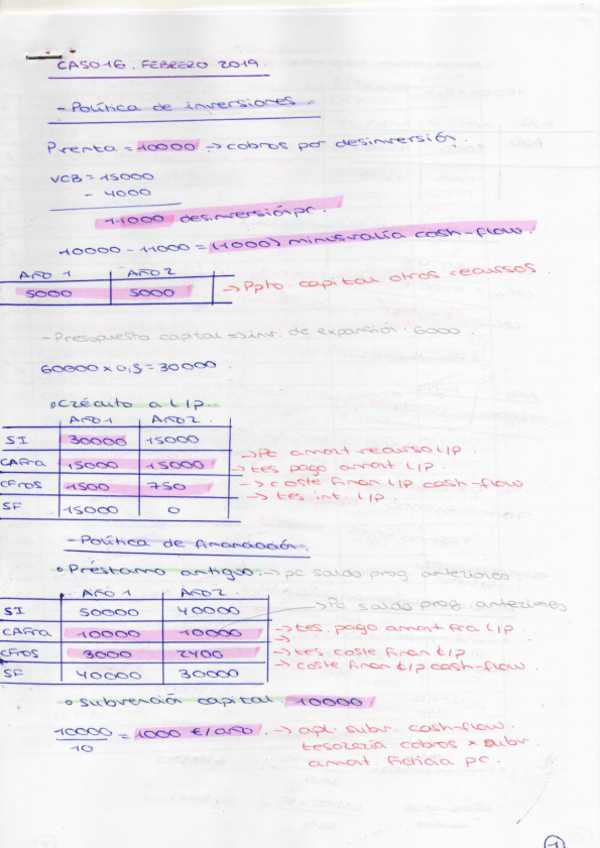 CASO 16. FEBRERO 2019.
- Política de inversiones.
Pventa = 10000 → cobros por desinversión.
VCB = 15000
- 4000
11000 desinversión pc.
10000 - 11000 = (1000) minusvalía cash-flow.
AÑO 1 AÑO 2
5000 5000 → Ppto. capital otros recursos.
- Presupuesto capital → inv. de expansión. 6000
60000 x 0,5 = 30000.
• Crédito a L/P.
AÑO 1 AÑO 2.
SI 30000 15000 → Pc amort recurso L/P
CAFra 15000 15000 → tes pago amort L/P.
CFros 1500 750 → coste finan L/P cash-flow
→ tes int. L/P.
SF 15000 0
- Política de financiación.
• Préstamo antiguo. → pc saldo prog anteriores
AÑO 1 AÑO 2.
SI 50000 40000 → Pc saldo prog. anteriores
CAFra 10000 10000 → tes. pago amort fra L/P
→
CFros 3000 2400 → tes coste finan L/P.
→ coste finan L/P cash-flow.
SF 40000 30000
• Subvención capital. 10000
10000
10 = 1000 €/año. → apl. subv. cash-flow.
tesorería cobros x subv.
amort. ficticia pc.
1